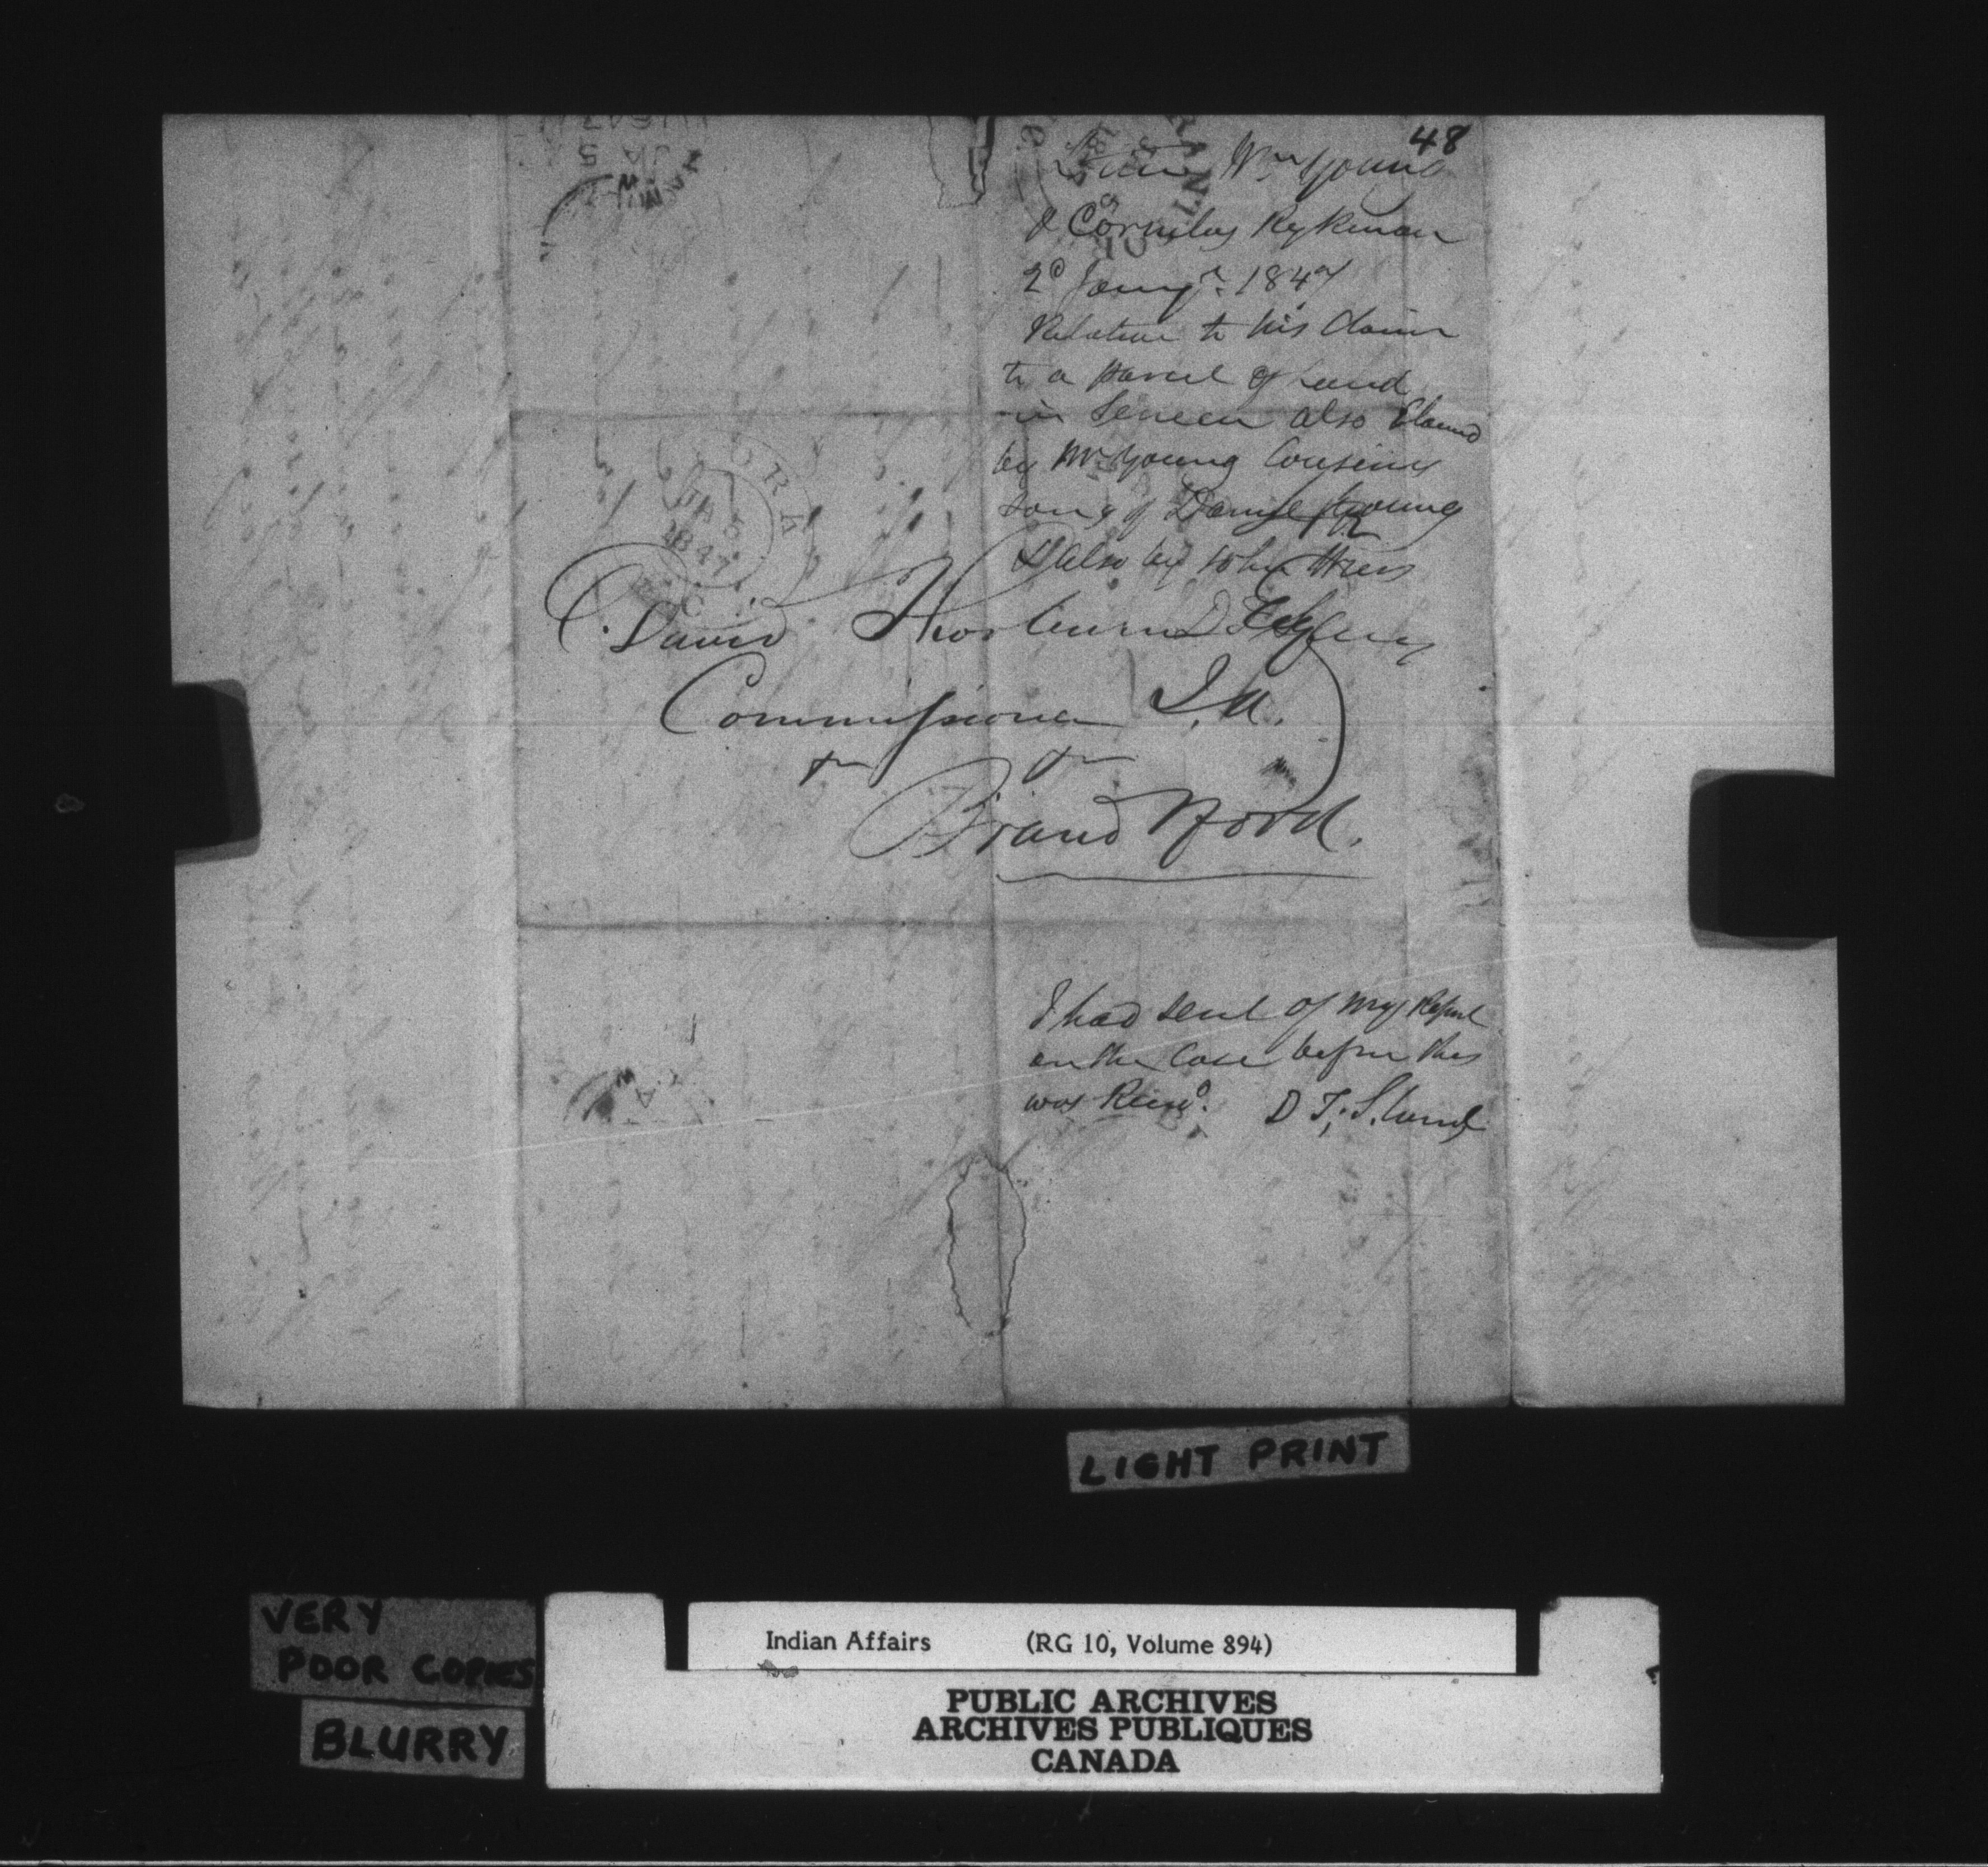 48
Wm Young
& Cornilus Rykman
2d Jany. 1847
Relative to his Claim
to a parcel of Land
in Seneca also Claimd
by Mr Young Cousins
sons of Daniel Young
& also by John
David Thorburn Esq
Commissioner I.A.
Brandtford.
JA 5
1847
I had sent of my Report
on the Case before this
was Recivd.
LIGHT PRINT
VERY
POOR COPIES
BLURRY
Indian Affairs (RG 10, Volume 894)
PUBLIC ARCHIVES
ARCHIVES PUBLIQUES
CANADA